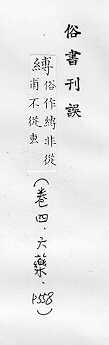 俗書刊誤
縛俗作縳非從
甫不從叀
(卷四．六藥．P558)